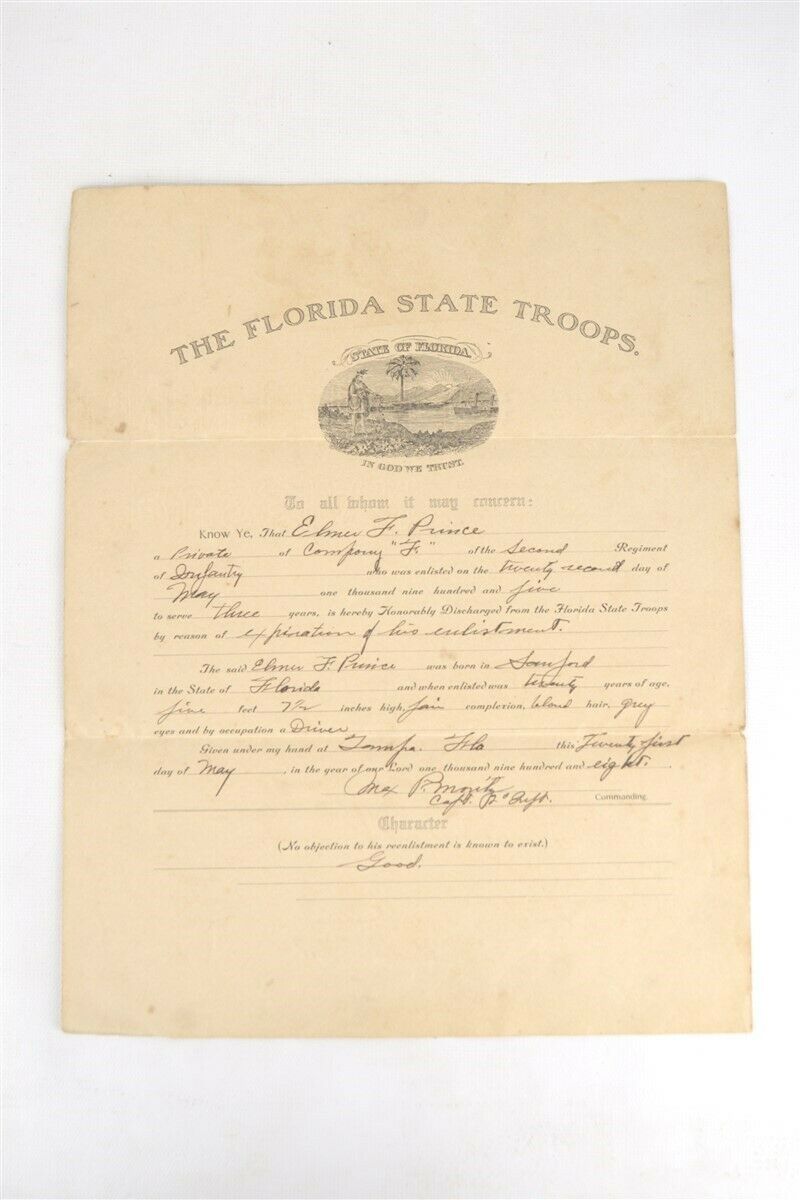 THE FLORIDA STATE TROOPS.
STATE OF FLORIDA.
IN GOD WE TRUST.
To all whom it may concern:
Know Ye, That Elmer F. Prince
a Private of Company "F." of the Second Regiment
of Infantry who was enlisted on the twenty second day of
May one thousand nine hundred and five
to serve three years, is hereby Honorably Discharged from the Florida State Troops
by reason of expiration of his enlistment.
The said Elmer F. Prince was born in Sanford
in the State of Florida and when enlisted was twenty years of age,
five feet 7½ inches high, fair complexion, blond hair, grey
eyes and by occupation a Driver
Given under my hand at Tampa. Fla this Twenty first
day of May, in the year of our Lord one thousand nine hundred and eight.
Max
Capt. Commanding.
Character
(No objection to his reenlistment is known to exist.)
Good.